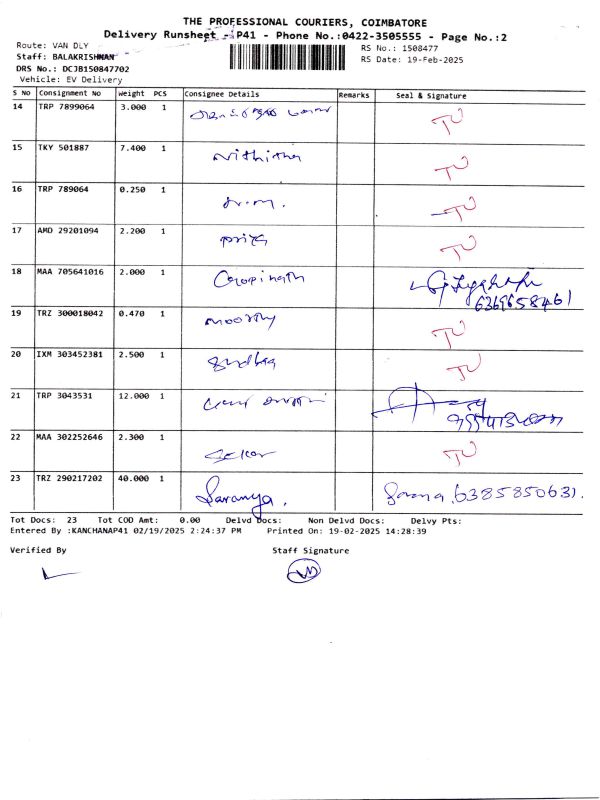 THE PROFESSIONAL COURIERS, COIMBATORE
Delivery Runsheet - P41 - Phone No.:0422-3505555 - Page No.:2
Route: VAN DLY
RS No.: 1508477
Staff: BALAKRISHNAN
RS Date: 19-Feb-2025
DRS No.: DCJB150847702
Vehicle: EV Delivery
S No Consignment No Weight PCS Consignee Details Remarks Seal & Signature
14 TRP 7899064 3.000 1
15 TKY 501887 7.400 1 Nithitha
16 TRP 789064 0.250 1
17 AMD 29201094 2.200 1 priya
18 MAA 705641016 2.000 1 Gopinath
19 TRZ 300018042 0.470 1 moorthy
20 IXM 303452381 2.500 1 Sudha
21 TRP 3043531 12.000 1
22 MAA 302252646 2.300 1 Sekar
23 TRZ 290217202 40.000 1 Saranya. 6385850631.
Tot Docs: 23 Tot COD Amt: 0.00 Delvd Docs: Non Delvd Docs: Delvy Pts:
Entered By :KANCHANAP41 02/19/2025 2:24:37 PM Printed On: 19-02-2025 14:28:39
Verified By Staff Signature